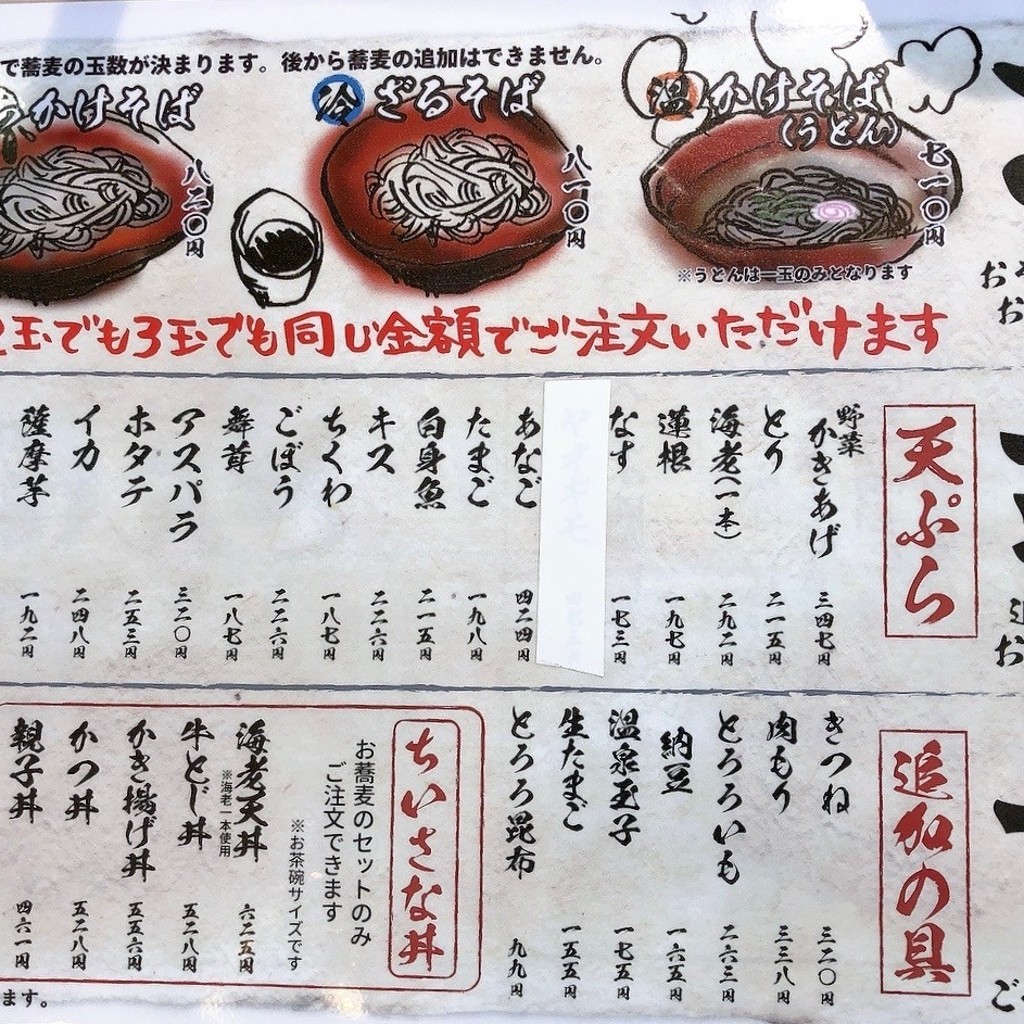 で蕎麦の玉数が決まります。後から蕎麦の追加はできません。
温 かけそば
(うどん)
七一〇円
※うどんは一玉のみとなります
冷 ざるそば
八一〇円
かけそば
八二〇円
2玉でも3玉でも同じ金額でご注文いただけます
天ぷら
野菜かきあげ 三四七円
とり 二一五円
海老(一本) 二九二円
蓮根 一九七円
なす 一七三円
あなご 四二四円
たまご 一九八円
白身魚 二一五円
キス 二二六円
ちくわ 一八七円
ごぼう 二二六円
舞茸 一八七円
アスパラ 三二〇円
ホタテ 二五三円
イカ 二四八円
薩摩芋 一九二円
追加の具
きつね 三二〇円
肉もり 三三八円
とろろいも 二六三円
納豆 一六五円
温泉玉子 一七五円
生たまご 一五五円
とろろ昆布 九九円
ちいさな丼
お蕎麦のセットのみ
ご注文できます
※お茶碗サイズです
海老天丼 六二五円
※海老一本使用
牛とじ丼 五二八円
かき揚げ丼 五五六円
かつ丼 五二八円
親子丼 四六一円
ます。